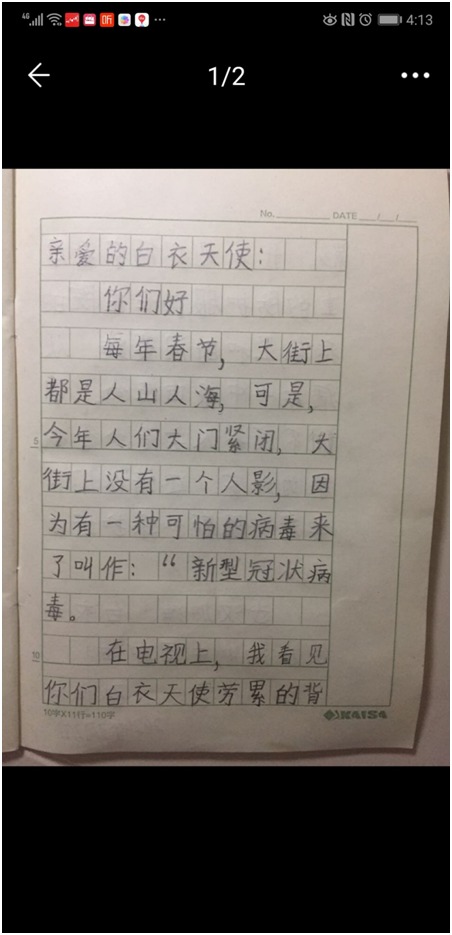 4G 听 4:13
1/2
No. DATE / /
亲爱的白衣天使：
你们好
每年春节，大街上
都是人山人海，可是，
5 今年人们大门紧闭，大
街上没有一个人影，因
为有一种可怕的病毒来
了叫作：“新型冠状病
毒。
10 在电视上，我看见
你们白衣天使劳累的背
10字X11行=110字 KAISA